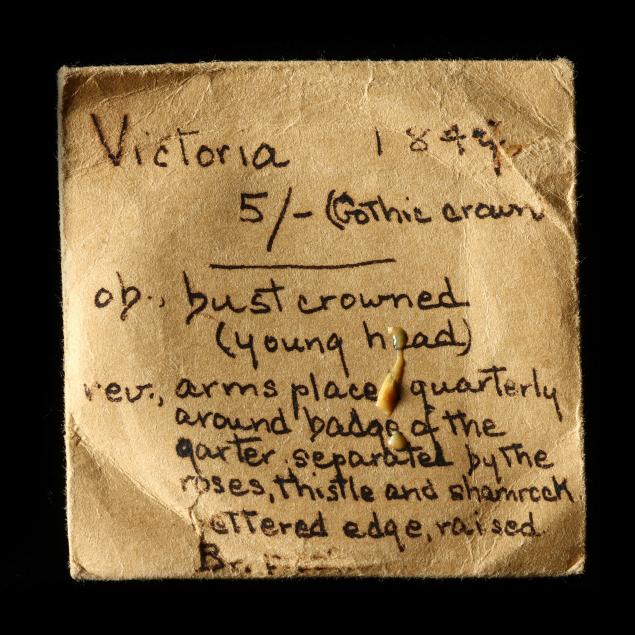 Victoria 184
5/- (Gothic crown
ob., bust crowned
(young head)
rev., arms place quarterly
around badge of the
garter separated by the
roses, thistle and shamrock
ettered edge, raised
Br.